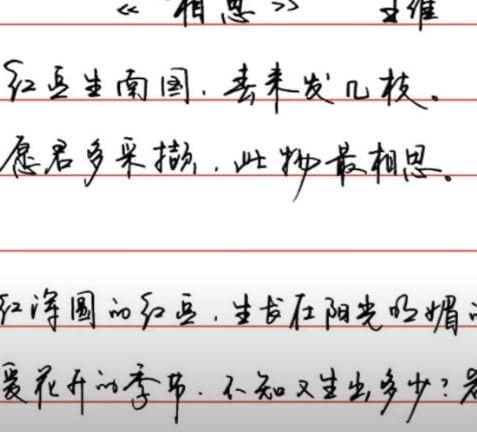 《相思》 王维
红豆生南国，春来发几枝。
愿君多采撷，此物最相思。
红浑圆的红豆，生长在阳光明媚的
暖花开的季节，不知又生出多少？